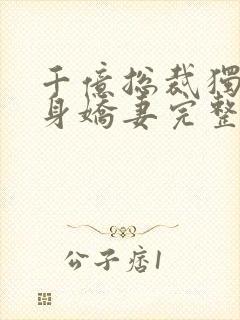 千億總裁獨
身嬌妻完整
公子痞1